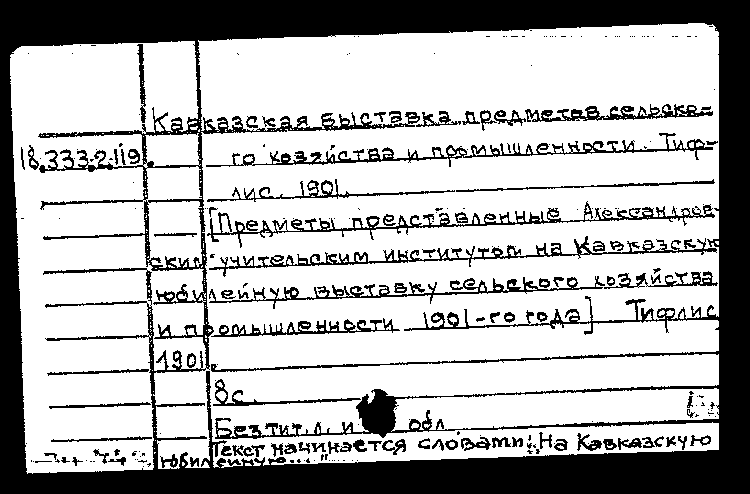 Кавказская выставка предметов сельско-
18.333.2.119.
го хозяйства и промышленности. Тиф-
лис. 1901.
[Предметы, представленные Александров-
ским учительским институтом на Кавказскую
юбилейную выставку сельского хозяйства
и промышленности 1901-го года] Тифлис,
1901.
8с.
Без тит. л. и обл.
Текст начинается словами: "На Кавказскую
юбилейную..."